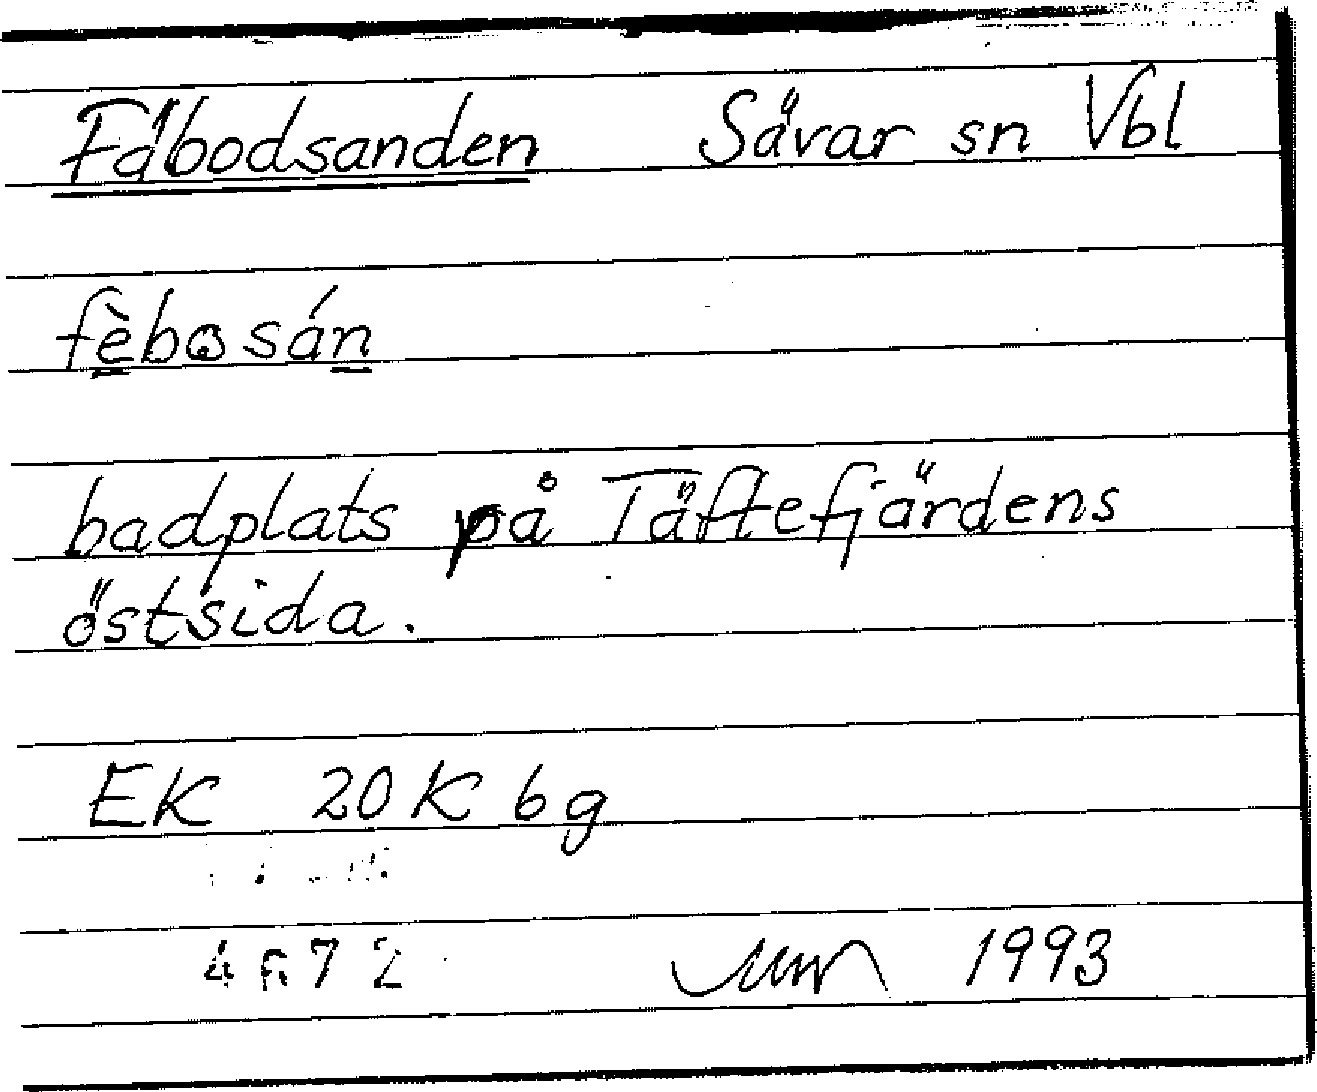 Fäbodsanden Sävar sn Vbl
fèbosán
badplats på Täftefjärdens
östsida.
EK 20K 6g
4672
1993